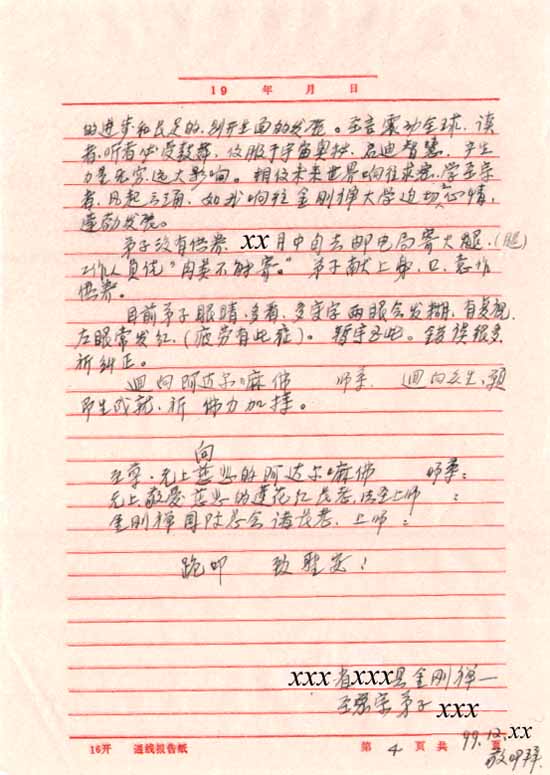 19 年 月 日
的进步和长足的、别开生面的发展。至言震动全球、读
者、听者倍受鼓舞,仅服于宇宙奥秘、启迪智慧、产生
力量无穷远大影响。相信未来世界响往求索、学至宗
者,风起云涌,如我响往金刚禅大学迫切心情,
蓬勃发展。
弟子没有供养 xx月中旬去邮电局寄大腿、(腿)
工作人员说“肉类不能寄。”弟子献上身、口、意作
供养。
目前弟子眼睛,多看、多写字两眼会发糊,有复视、
左眼常发红,(疲劳有此症)。暂写至此。错误很多
祈纠正。
迴向阿达尔嘛佛 师尊 迴向众生,
即生成就,祈 佛力加持。
向
至尊·无上慈悲的阿达尔嘛佛 师尊:
无上敬爱慈悲的莲花红长老,上师 :
金刚禅国际总会诸长老、上师:
跪叩 致圣安!
xxx省xxx县金刚禅一
至尊宗弟子xxx
99.12.xx
敬叩拜
16开 通线报告纸 第 4 页共 页